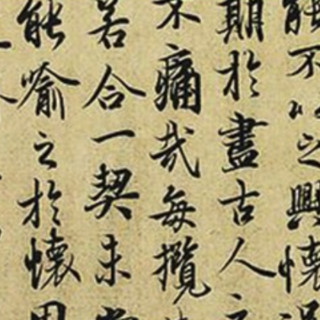 能不以之興懷
期於盡古人
不痛哉每攬
若合一契未
能喻之於懷